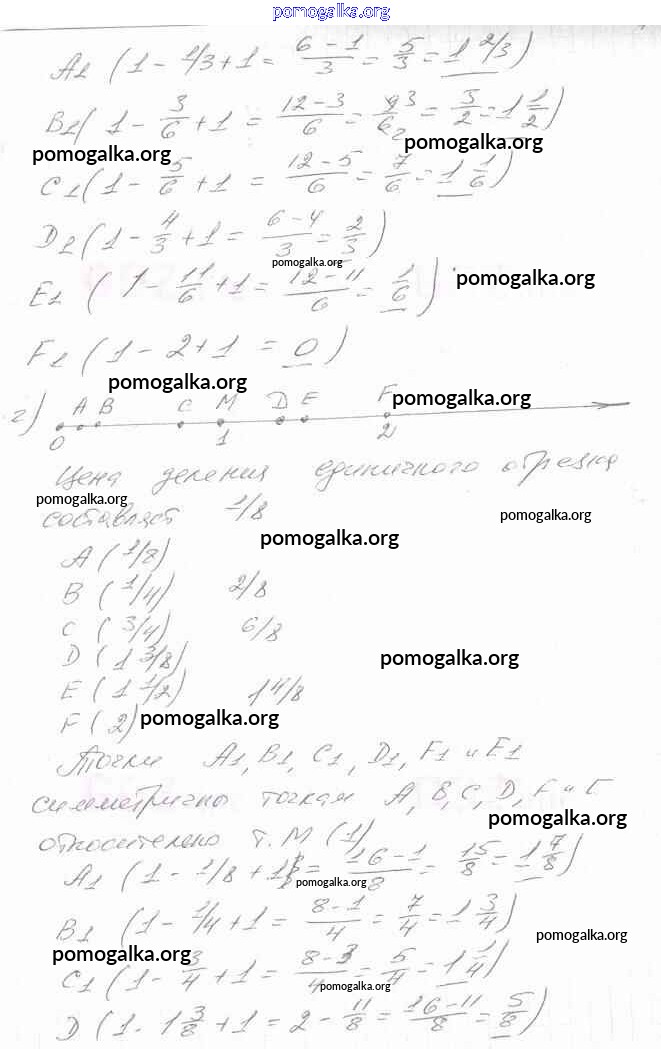 pomogalka.org
A1 (1 - 1/3 + 1 = (6-1)/3 = 5/3 = 1 2/3)
B1 (1 - 3/6 + 1 = (12-3)/6 = 9 3/6 2 = 3/2 = 1 1/2)
pomogalka.org pomogalka.org
C1 (1 - 5/6 + 1 = (12-5)/6 = 7/6 = 1 1/6)
D1 (1 - 4/3 + 1 = (6-4)/3 = 2/3)
pomogalka.org
E1 (1 - 11/6 + 1 = (12-11)/6 = 1/6) pomogalka.org
F1 (1 - 2 + 1 = 0)
pomogalka.org
г) A B C M D E F pomogalka.org
0 1 2
Цена деления единичного отрезка
pomogalka.org
составляет 1/8 pomogalka.org
pomogalka.org
A (1/8)
B (1/4) 2/8
C (3/4) 6/8
D (1 3/8) pomogalka.org
E (1 1/2) 1 4/8
F (2) pomogalka.org
Точки A1, B1, C1, D1, F1 и E1
симметричны точкам A, B, C, D, F и E
pomogalka.org
относительно т. M (1)
A1 (1 - 1/8 + 1 = (16-1)/8 = 15/8 = 1 7/8)
pomogalka.org
B1 (1 - 1/4 + 1 = (8-1)/4 = 7/4 = 1 3/4)
pomogalka.org pomogalka.org
C1 (1 - 3/4 + 1 = (8-3)/4 = 5/4 = 1 1/4)
pomogalka.org
D (1 - 1 3/8 + 1 = 2 - 11/8 = (16-11)/8 = 5/8)